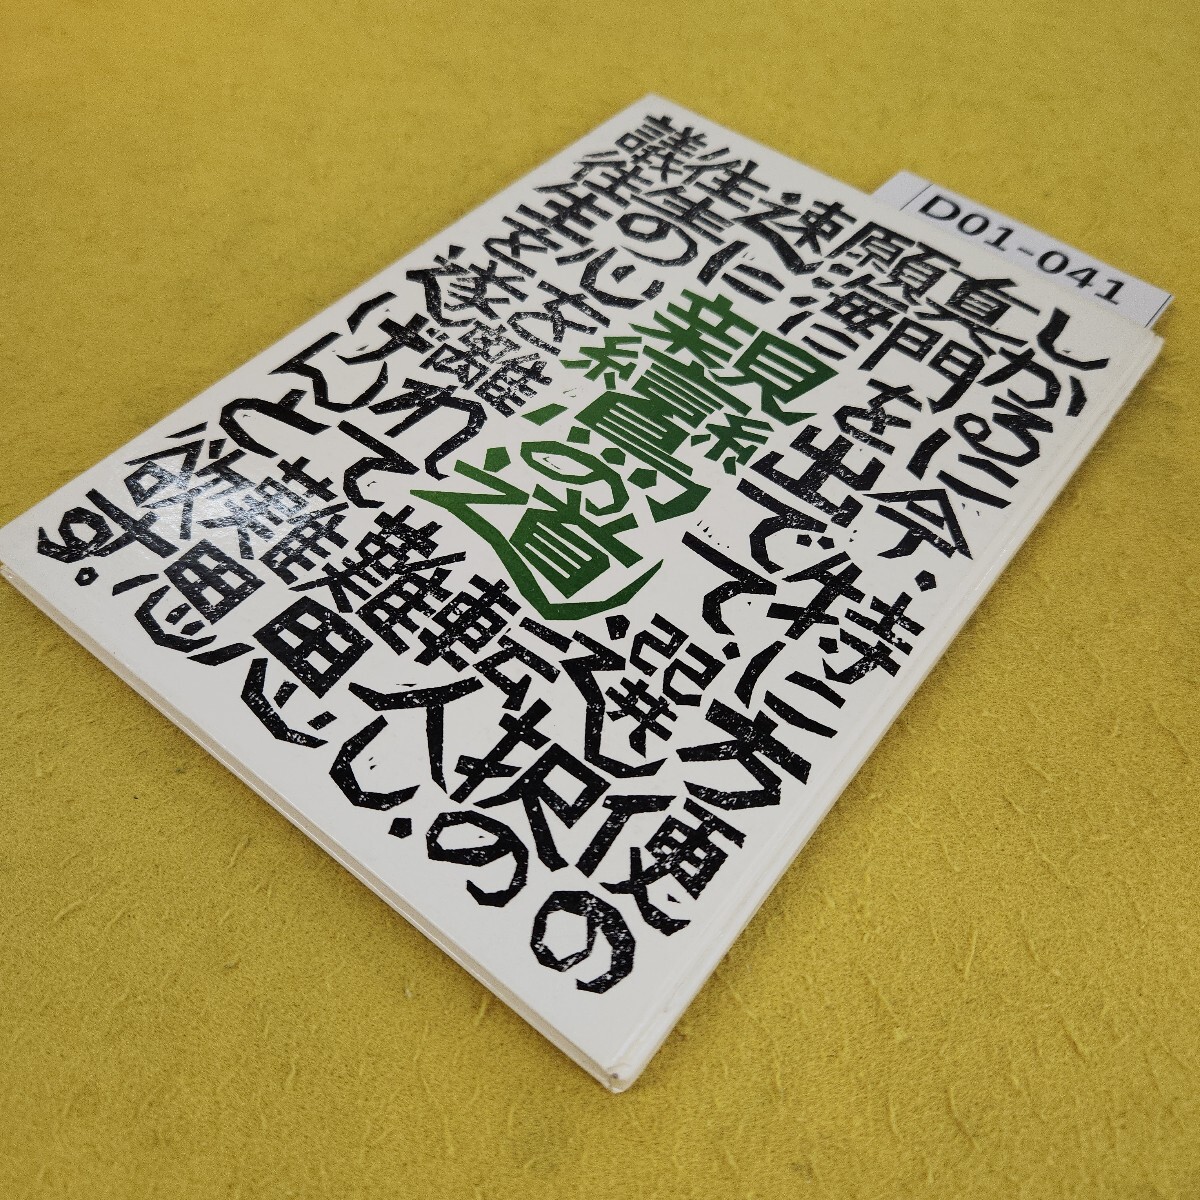 しかるに今・特に方便の
真門を出でて選択の
願海に転入し・
速に難思
往生の心を離れて難思
議往生を遂げんと欲す・
親鸞の道
D01-041